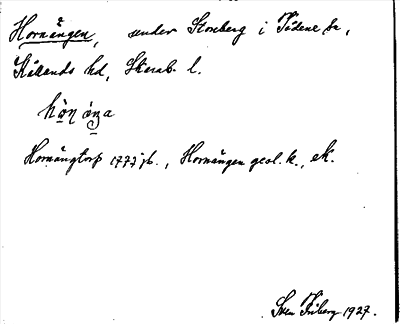 Hornängen, under Stoneberg i Tådene sn,
Kållands hd, Skarab. l.
hòn òna
Hornängtorp 1777 jb., Hornängen geol. k., ek.
Sven Friberg 1927.